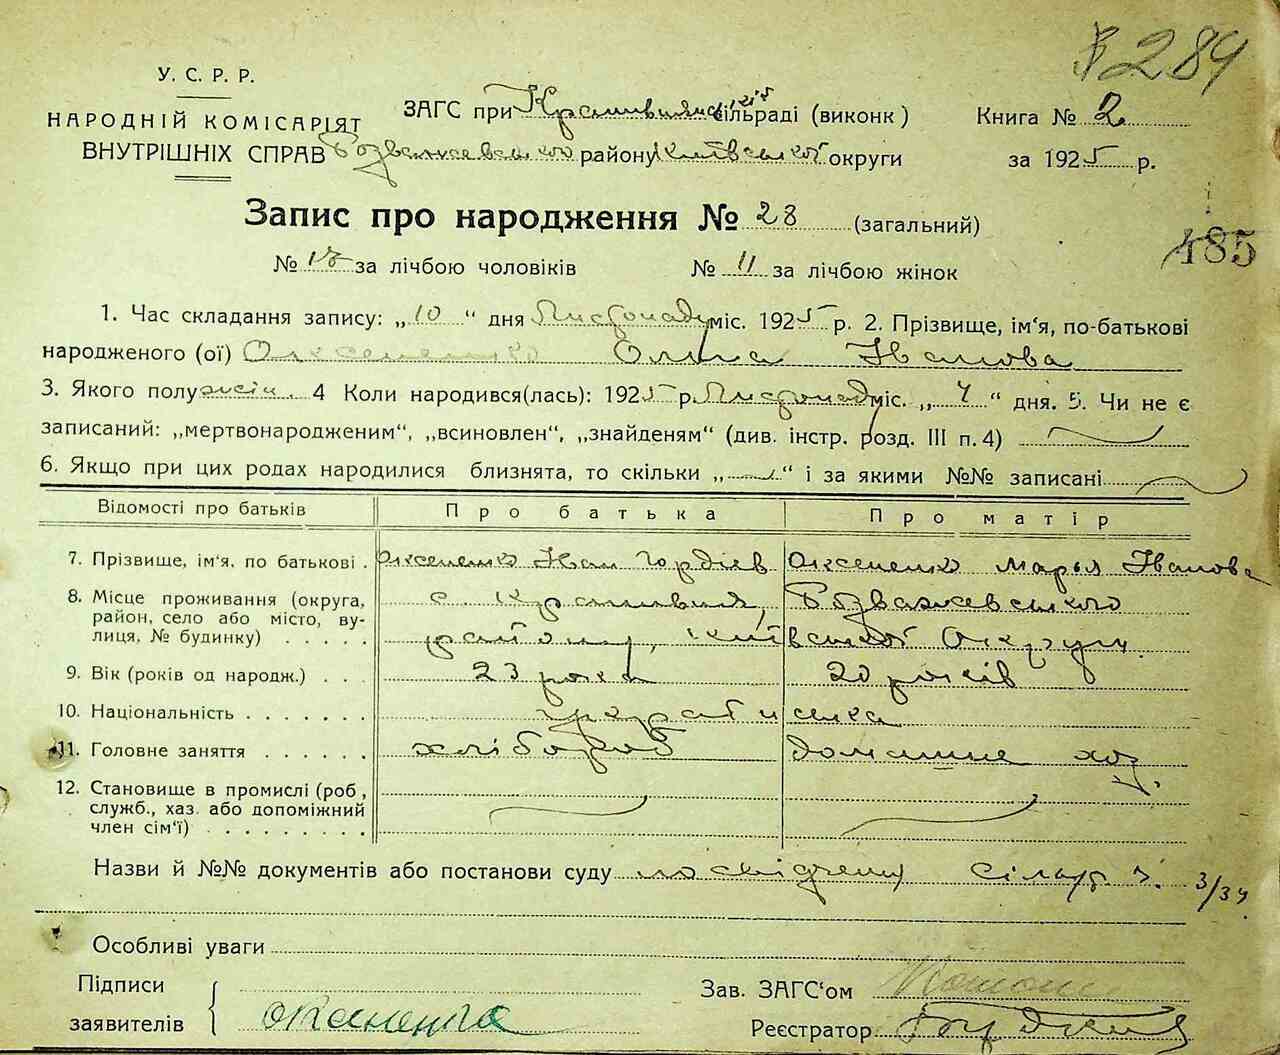 289
У. С. Р. Р.
НАРОДНІЙ КОМІСАРІЯТ
ВНУТРІШНІХ СПРАВ
ЗАГС при сільраді (виконк)
Розважевського району Київської округи
Книга № 2
за 1925 р.
Запис про народження № 28 (загальний)
485
№ за лічбою чоловіків № 11 за лічбою жінок
1. Час складання запису: „10“ дня Листопаду міс. 1925 р. 2. Прізвище, ім'я, по-батькові
народженого (ої) Оксененко Ольга Іванова
3. Якого полу жін. 4 Коли народився(лась): 1925 р. Листопаду міс. „ “ дня. 5. Чи не є
записаний: „мертвонародженим“, „всиновлен“, „знайденям“ (див. інстр. розд. III п. 4)
6. Якщо при цих родах народилися близнята, то скільки „ “ і за якими №№ записані
Відомості про батьків Про батька Про матір
7. Прізвище, ім'я, по батькові . Оксененко Іван Гордієв Оксененко Марья Іванова
8. Місце проживання (округа, с. Кропивня, Розважевського
район, село або місто, ву-
лиця, № будинку) . . . . . району, Київської Округи
9. Вік (років од народж.) . . . 23 роки 20 років
10. Національність . . . . . . . українка
11. Головне заняття . . . . . . хлібороб домашнє хоз.
12. Становище в промислі (роб,
служб., хаз. або допоміжний
член сім'ї) . . . . . . . . .
Назви й №№ документів або постанови суду по свідченню Сільради ч. 3/34
Особливі уваги
Підписи
заявителів
Зав. ЗАГС'ом
Реєстратор